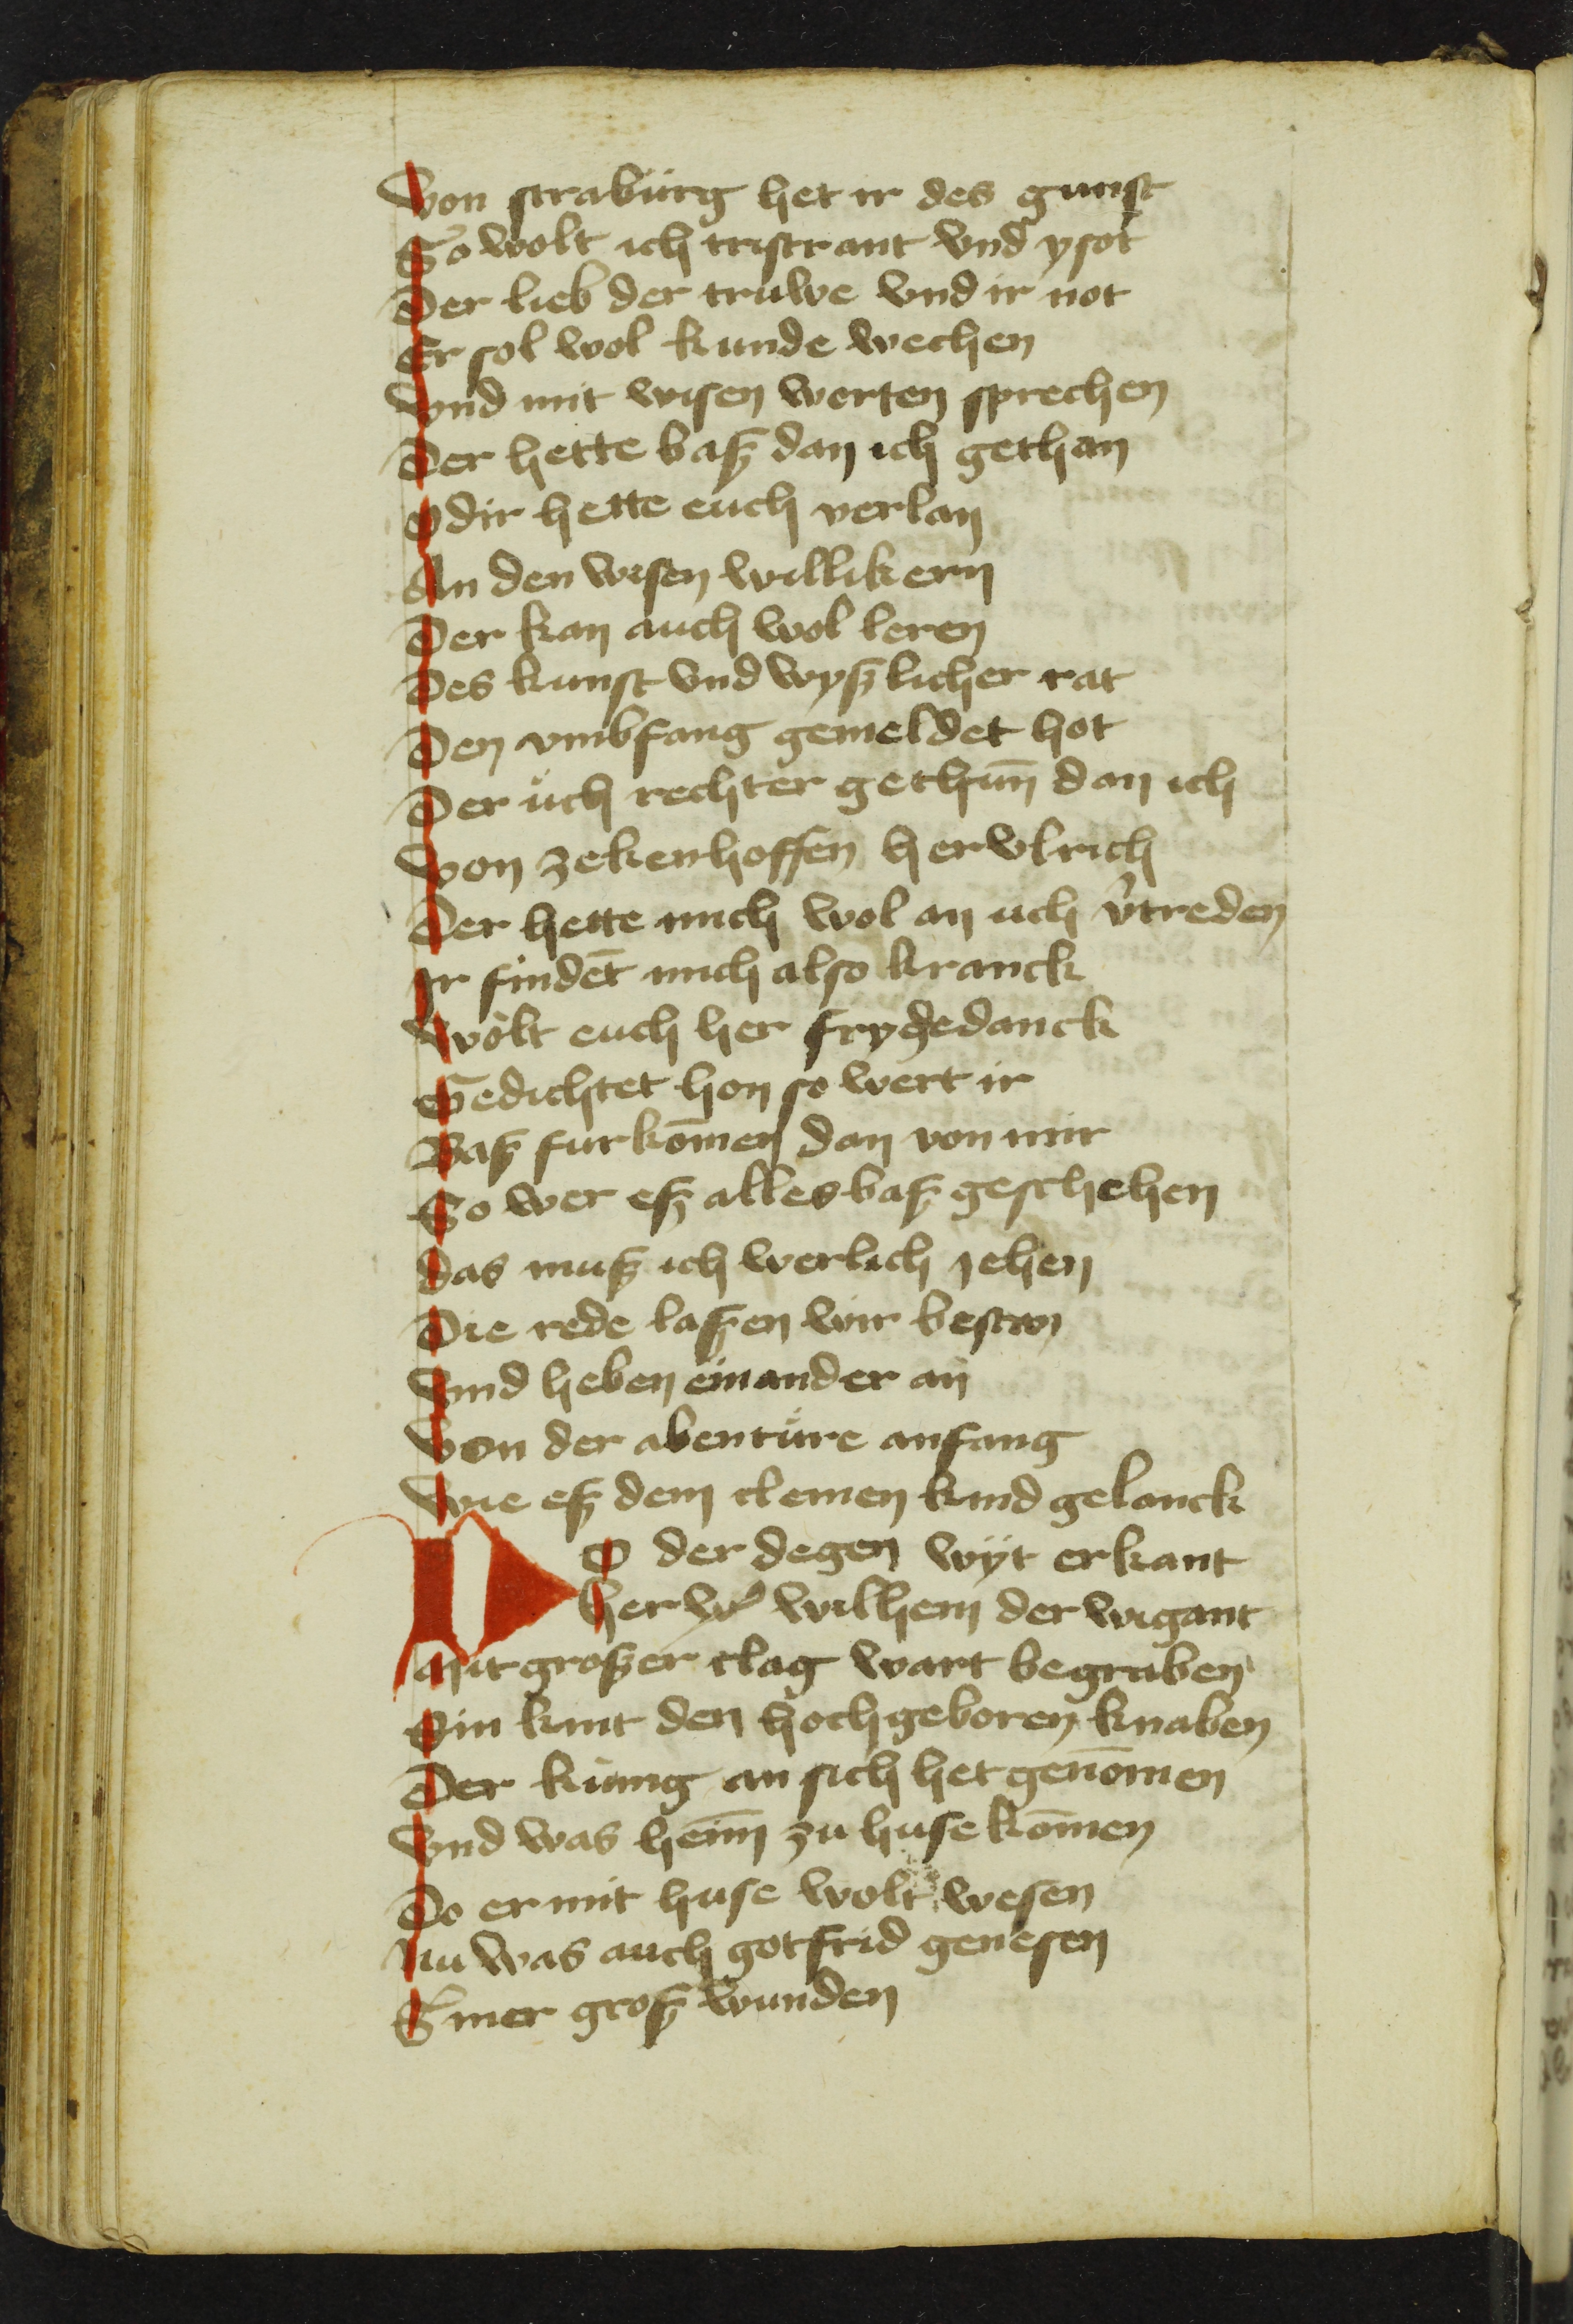 Von straburg het ir des gunst
So wolt ich tristrant vnd ysot
Der lieb der truwe vnd ir not
Er sol wol kunde wechen
Vnd mit wisen worten sprechen
Der hette baß dan ich gethan
Odir hette euch verlan
An den wisen willikern
Der kan auch wol leren
Des kunst vnd wyßlicher rat
Den vmbfang gemeldet hot
Der uch rechter gethun̄ dan ich
Von zekenhoffen her vlrich
Der hette mich wol an uch v̾treden
Ir findet̄ mich also kranck
Wolt euch her frygedanck
Gedichtet hon so wert ir
Baß furkom̄en dan von mir
So wer eß alles baß geschehen
Das muß ich werlich jehen
Die rede laßen wir beston
Vnd heben einander an
Von der abenture anfang
Wie eß dem clemen kind gelanck
Do der degen wÿt erkant
Her wilhem der wigant
Mit großer clag wart begraben
Sin kint den hochgeboren knaben
Der kung an sich het genom̄en
Vnd was heim̄ zu huse kom̄en
Do er mit huse wolt wesen
Nu was auch gotfrid genesen
Siner groß wunden